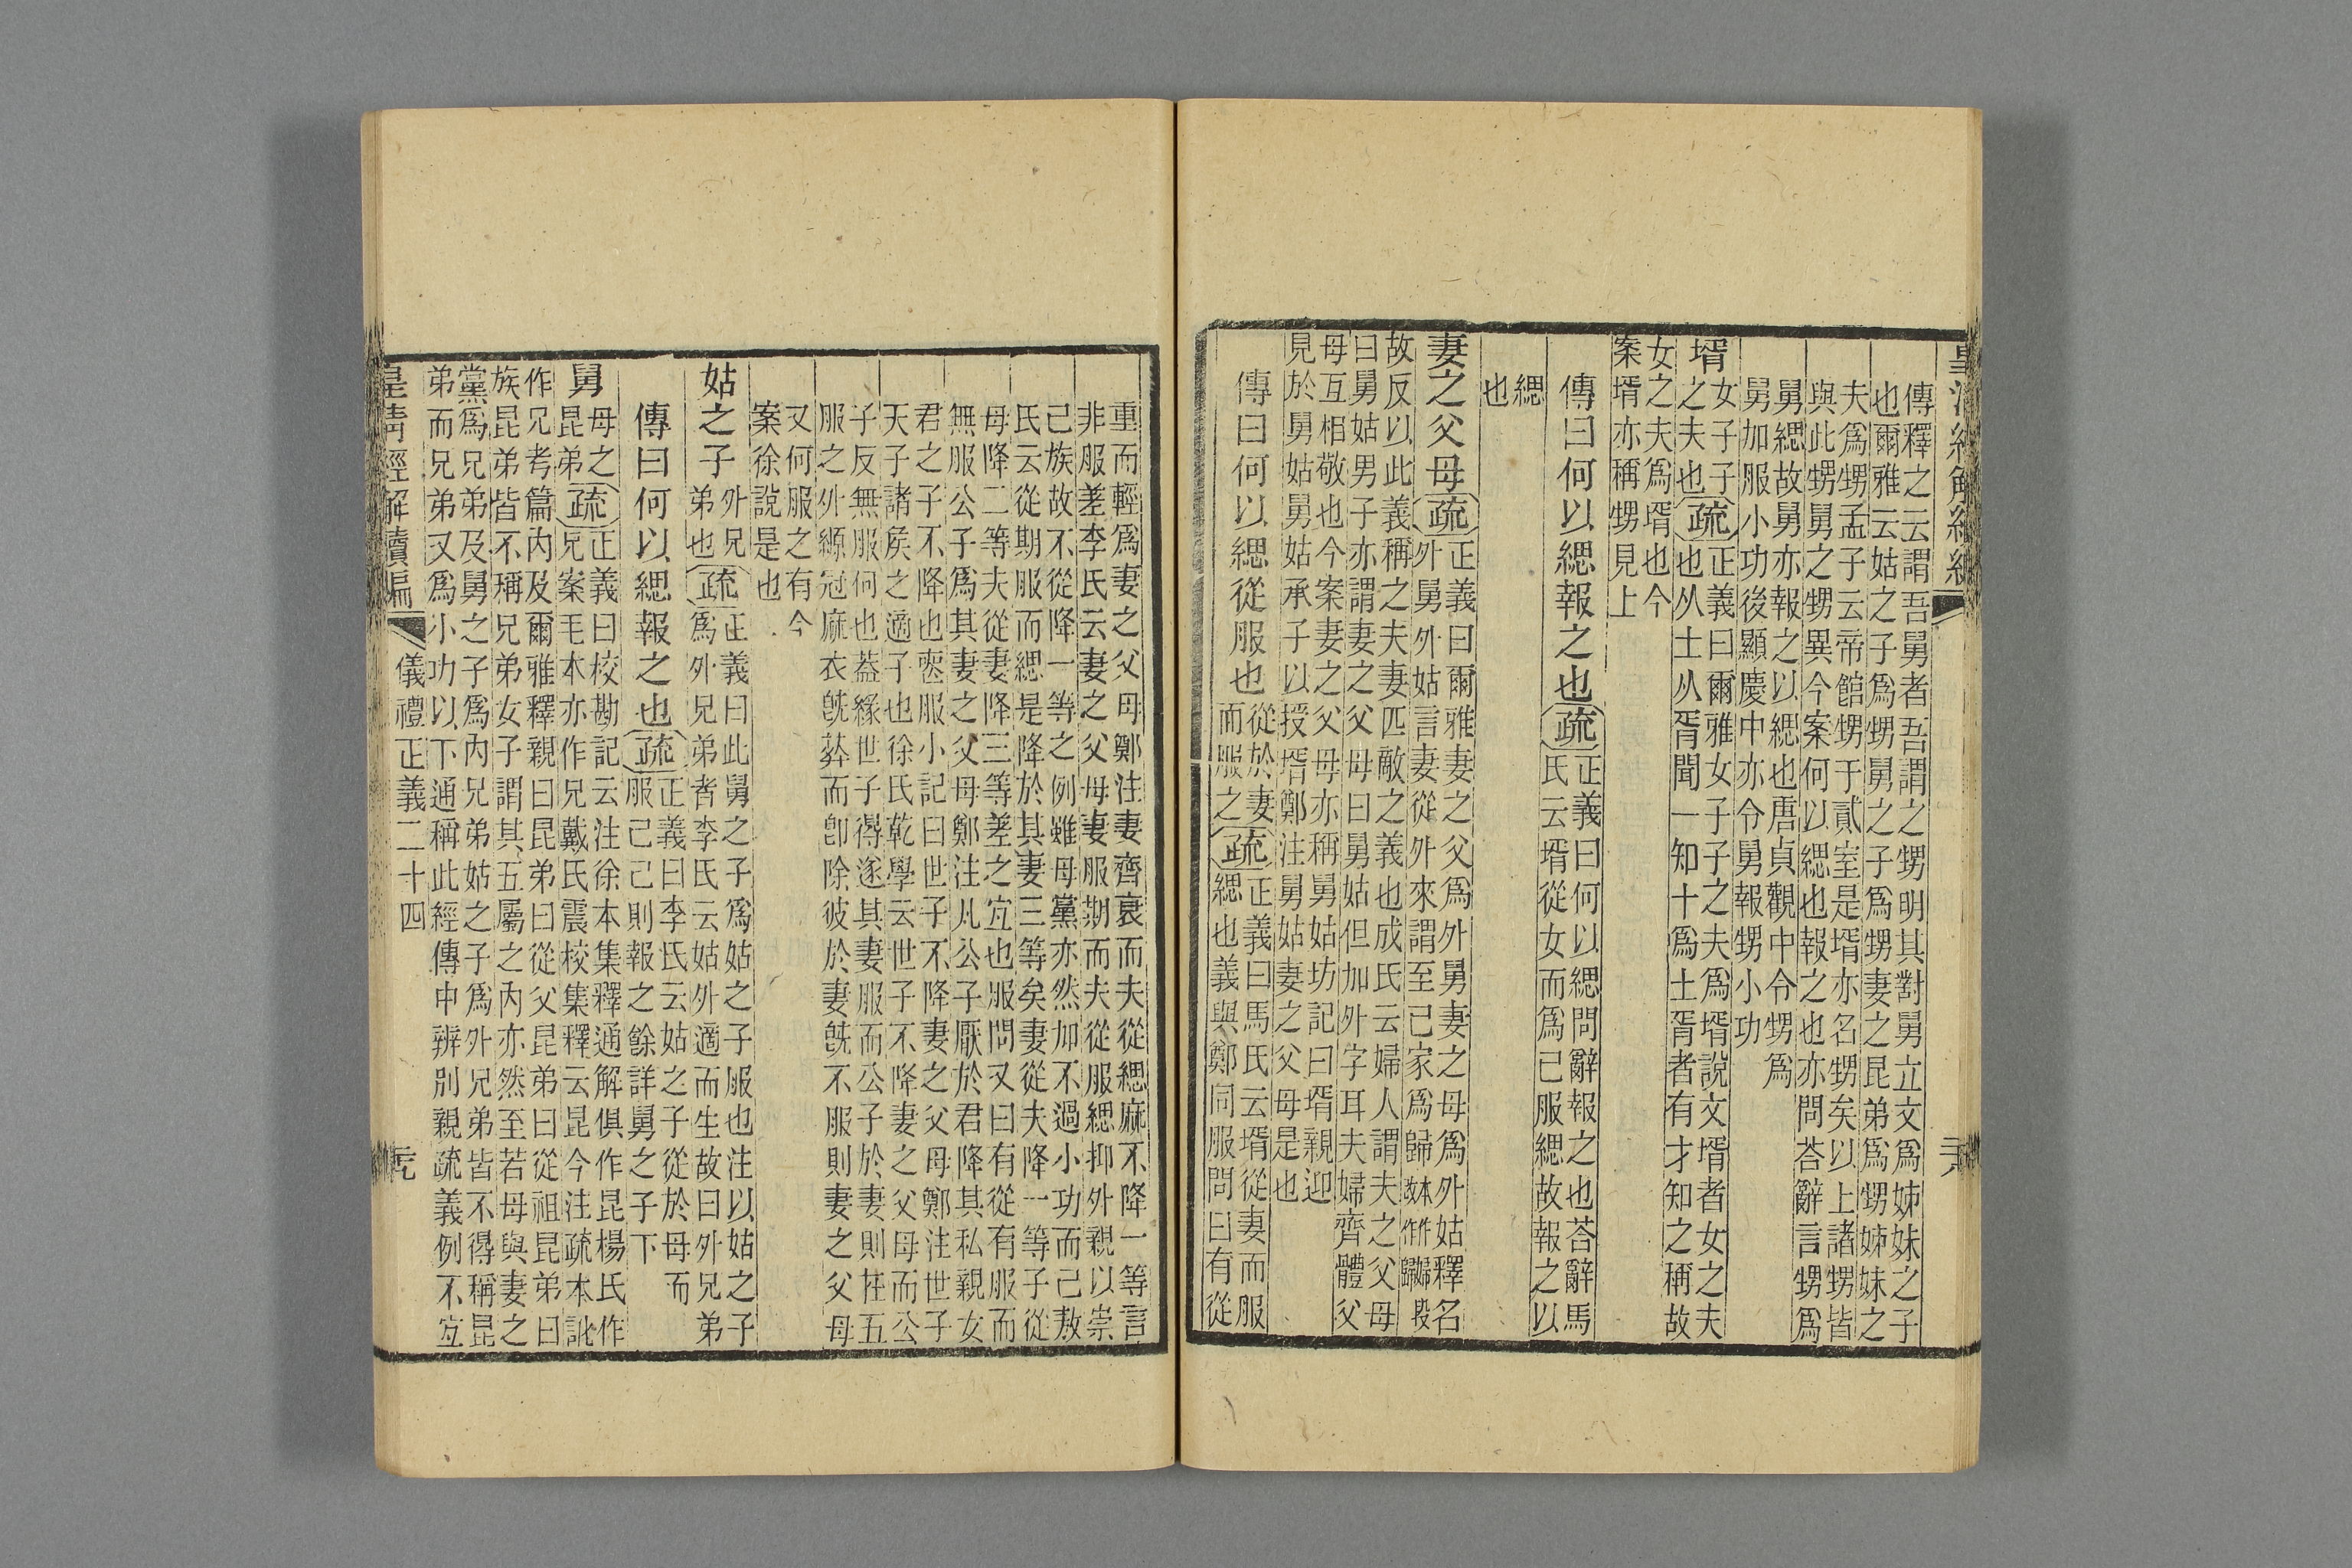 皇清經解續編
傳釋之云謂吾舅者吾謂之甥明其對舅立文爲姊妹之子
也爾雅云姑之子爲甥舅之子爲甥妻之昆弟爲甥姊妹之
夫爲甥孟子云帝館甥于貳室是壻亦名甥矣以上諸甥皆
與此甥舅之甥異今案何以緦也報之也亦問荅辭言甥爲
舅緦故舅亦報之以緦也唐貞觀中令甥爲
舅加服小功後顯慶中亦令舅報甥小功
壻
女子子
之夫也
疏
正義曰爾雅女子子之夫爲壻説文壻者女之夫
也从士从胥聞一知十爲士胥者有才知之稱故
女之夫爲壻也今
案壻亦稱甥見上
傳曰何以緦報之也
疏
正義曰何以緦問辭報之也荅辭馬
氏云壻從女而爲己服緦故報之以
緦
也
妻之父母
疏
正義曰爾雅妻之父爲外舅妻之母爲外姑釋名
外舅外姑言妻從外來謂至己家爲歸
故反以此義稱之夫妻匹敵之義也成氏云婦人謂夫之父母
曰舅姑男子亦謂妻之父母曰舅姑但加外字耳夫婦齊體父
母互相敬也今案妻之父母亦稱舅姑坊記曰壻親迎
見於舅姑舅姑承子以授壻鄭注舅姑妻之父母是也
傳曰何以緦從服也
從於妻
而服之
疏
正義曰馬氏云壻從妻而服
緦也義與鄭同服問曰有從
重而輕爲妻之父母鄭注妻齊衰而夫從緦麻不降一等言
非服差李氏云妻之父母妻服期而夫從服緦抑外親以崇
己族故不從降一等之例雖母黨亦然加不過小功而己敖
氏云從期服而緦是降於其妻三等矣妻從夫降一等子從
母降二等夫從妻降三等差之宜也服問又曰有從有服而
無服公子爲其妻之父母鄭注凡公子厭於君降其私親女
君之子不降也喪服小記曰世子不降妻之父母鄭注世子
天子諸矦之適子也徐氏乾學云世子不降妻之父母而公
子反無服何也葢緣世子得遂其妻服而公子於妻則在五
服之外縓冠麻衣旣葬而卽除彼於妻旣不服則妻之父母
又何服之有今
案徐說是也
姑之子
外兄
弟也
疏
正義曰此舅之子爲姑之子服也注以姑之子
爲外兄弟者李氏云姑外適而生故曰外兄弟
傳曰何以緦報之也
疏
正義曰李氏云姑之子從於母而
服己己則報之餘詳舅之子下
舅
母之
昆弟
疏
正義曰校勘記云注徐本集釋通解俱作昆楊氏作
兄案毛本亦作兄戴氏震校集釋云昆今注疏本訛
作兄考篇内及爾雅釋親曰昆弟曰從父昆弟曰從祖昆弟曰
族昆弟皆不稱兄弟女子謂其五屬之内亦然至若母與妻之
黨爲兄弟及舅之子爲内兄弟姑之子爲外兄弟皆不得稱昆
弟而兄弟又爲小功以下通稱此經傳中辨别親疏義例不宜
皇清經解續編
儀禮正義二十四